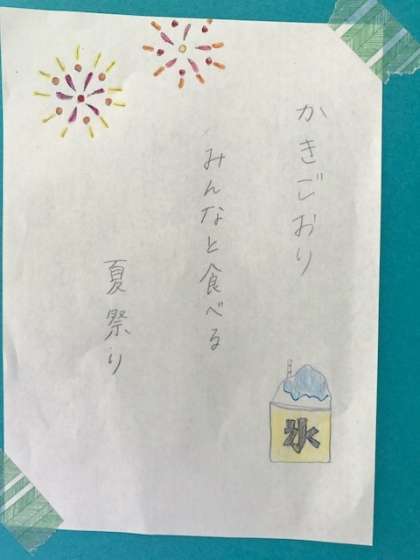 かきごおり
みんなと食べる
夏祭り
氷